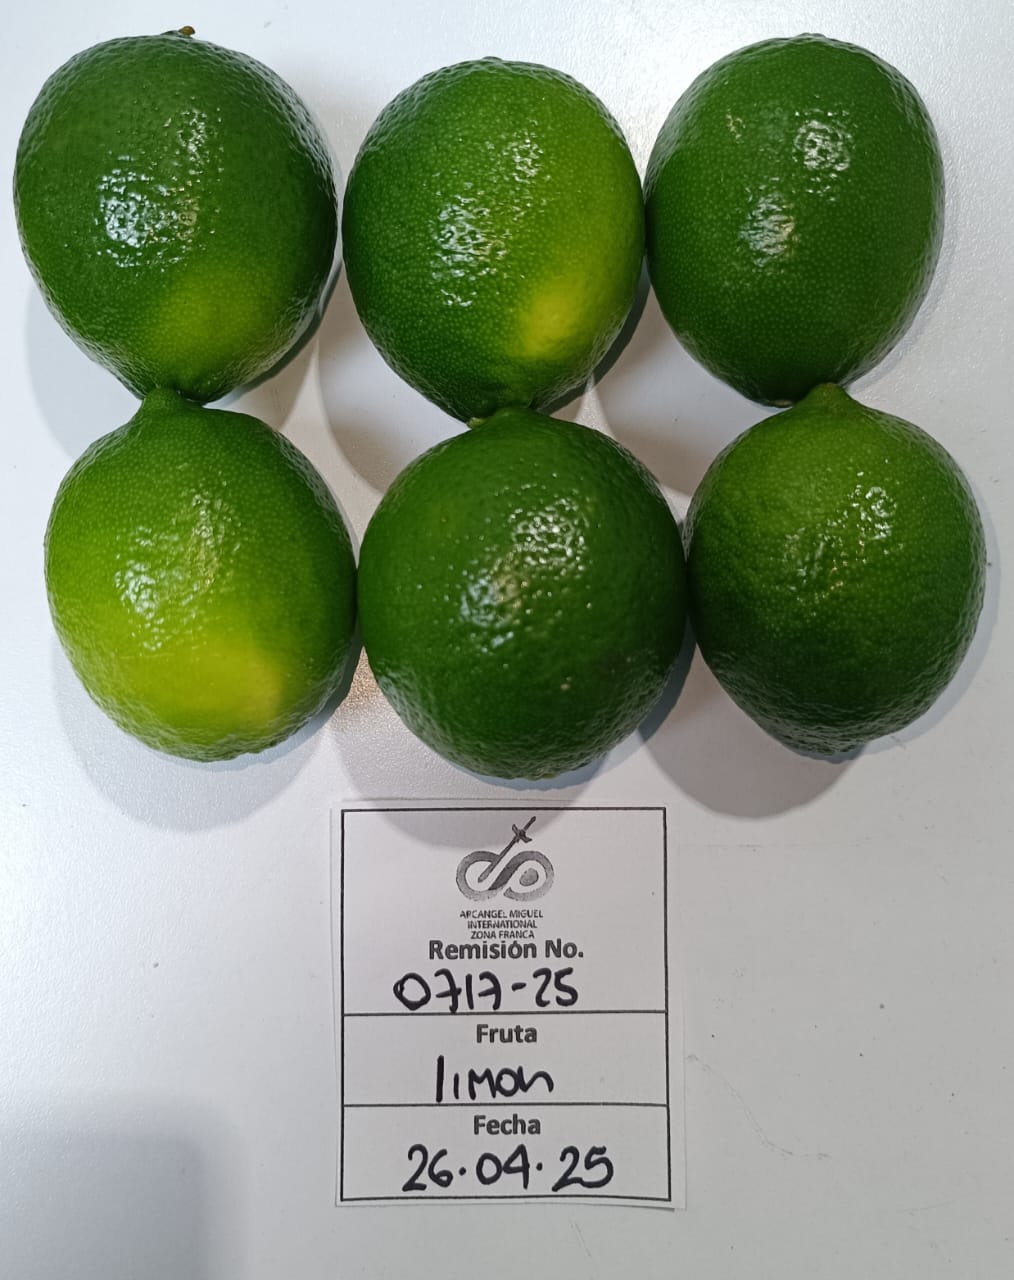 ARCANGEL MIGUEL
INTERNATIONAL
ZONA FRANCA
Remisión No.
0717-25
Fruta
limon
Fecha
26.04.25